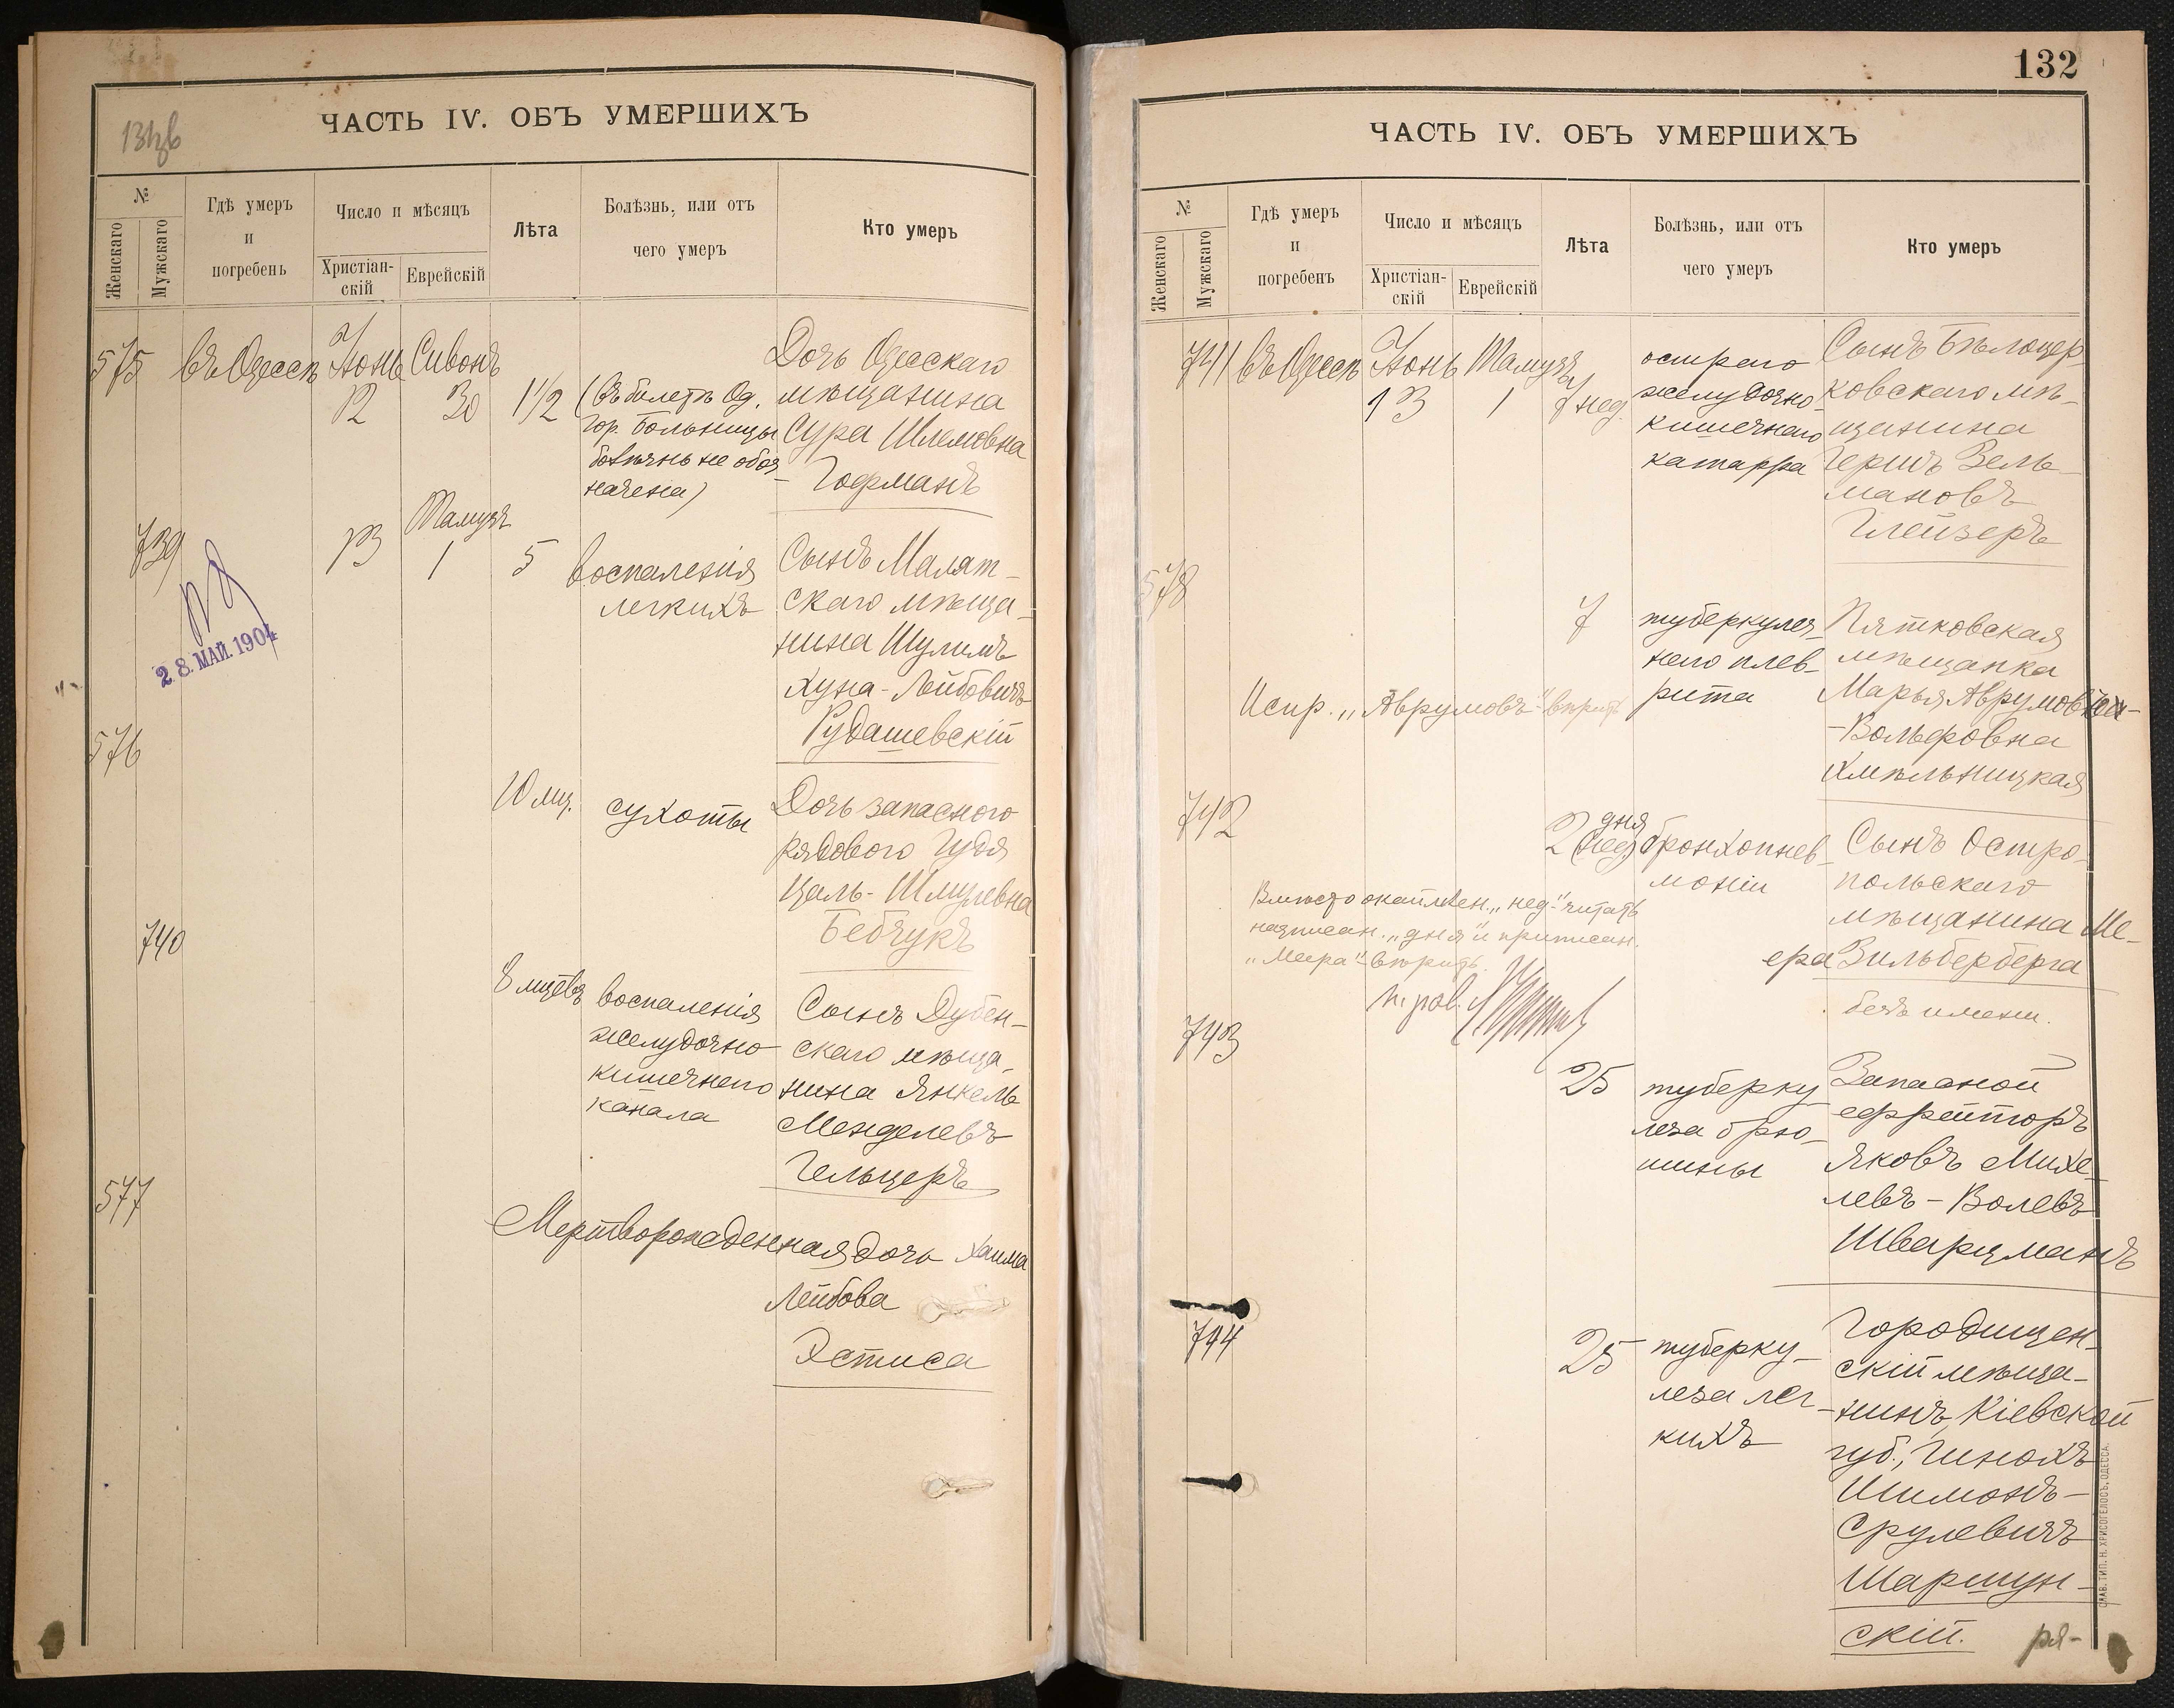 ЧАСТЬ IV. ОБЪ УМЕРШИХЪ
№
Женскаго
Мужскаго
Гдѣ умеръ
и
погребенъ
Число и мѣсяцъ
Христіан-
скій
Еврейскій
Лѣта
Болѣзнь, или отъ
чего умеръ
Кто умеръ
575
въ Одессѣ
Іюнь
12
Сивонъ
30
1 1/2
(Въ билетѣ Од.
Гор. Больницы
болѣзнь не обоз-
начена)
Дочь Одесскаго
мѣщанина
Сура Шлемовна
Гофманъ
739
13
Тамузъ
1
5
воспаленія
легкихъ
Сынъ Малят-
скаго мѣща-
нина Шулимъ
Хуна-Лейбовичъ
Рудашевскій
28. МАЙ. 1904
576
10 мц.
сухоты
Дочь запасного
рядового Гудя
Цаль-Шмулевна
Бебчукъ
740
8 мцевъ
воспаленія
желудочно
кишечнаго
канала
Сынъ Дубен-
скаго мѣща-
нина Янкель
Менделевъ
Гельцеръ
577
Мертворожденная дочь Хаима
Лейбова
Эстиса
132
ЧАСТЬ IV. ОБЪ УМЕРШИХЪ
№
Женскаго
Мужскаго
Гдѣ умеръ
и
погребенъ
Число и мѣсяцъ
Христіан-
скій
Еврейскій
Лѣта
Болѣзнь, или отъ
чего умеръ
Кто умеръ
741
въ Одессѣ
Іюнь
13
Тамузъ
1
7 нед.
остраго
желудочно-
кишечнаго
катарра
Сынъ Бѣлоцер-
ковскаго мѣ-
щанина
Гершъ Зель-
мановъ
Глейзеръ
578
7
туберкулез-
наго плев-
рита
Пятковская
мѣщанка
Марья Аврумовна-
-Вольфовна
Хмѣльницкая
Испр. „Аврумовъ" вѣрить
742
2 дня
(нед)
бронхопнев-
моніи
Сынъ Остро-
польскаго
мѣщанина Ме-
ера Зильберберга
безъ имени.
Вмѣсто окаймлен. „нед" читать
надписан. „дня" и приписан.
„Меера" вѣрить.
743
25
туберку
леза брю-
шины
Запасной
ефрейторъ
Яковъ Михе-
левъ-Волевъ
Шварцманъ
744
25
туберку-
леза лег-
кихъ
Городищен-
скій мѣща-
нинъ, Кіевской
губ., Гинохъ
Шимонъ-
Срулевичъ
Шаршун-
скій.
ря-
СЛАВ. ТИП. Н. ХРИСОГЕЛОСЪ, ОДЕССА.